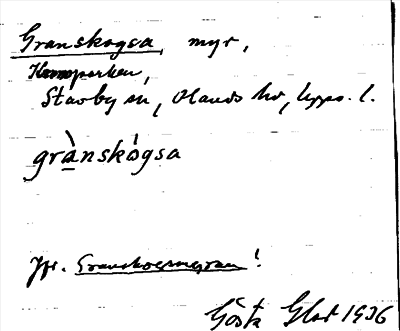 Granskogsa, myr,
Kronoparken,
Stavby sn, Olands hd, Upps. l.
grànskógsa
Jfr. Granskogsmyran!
Gösta 1936